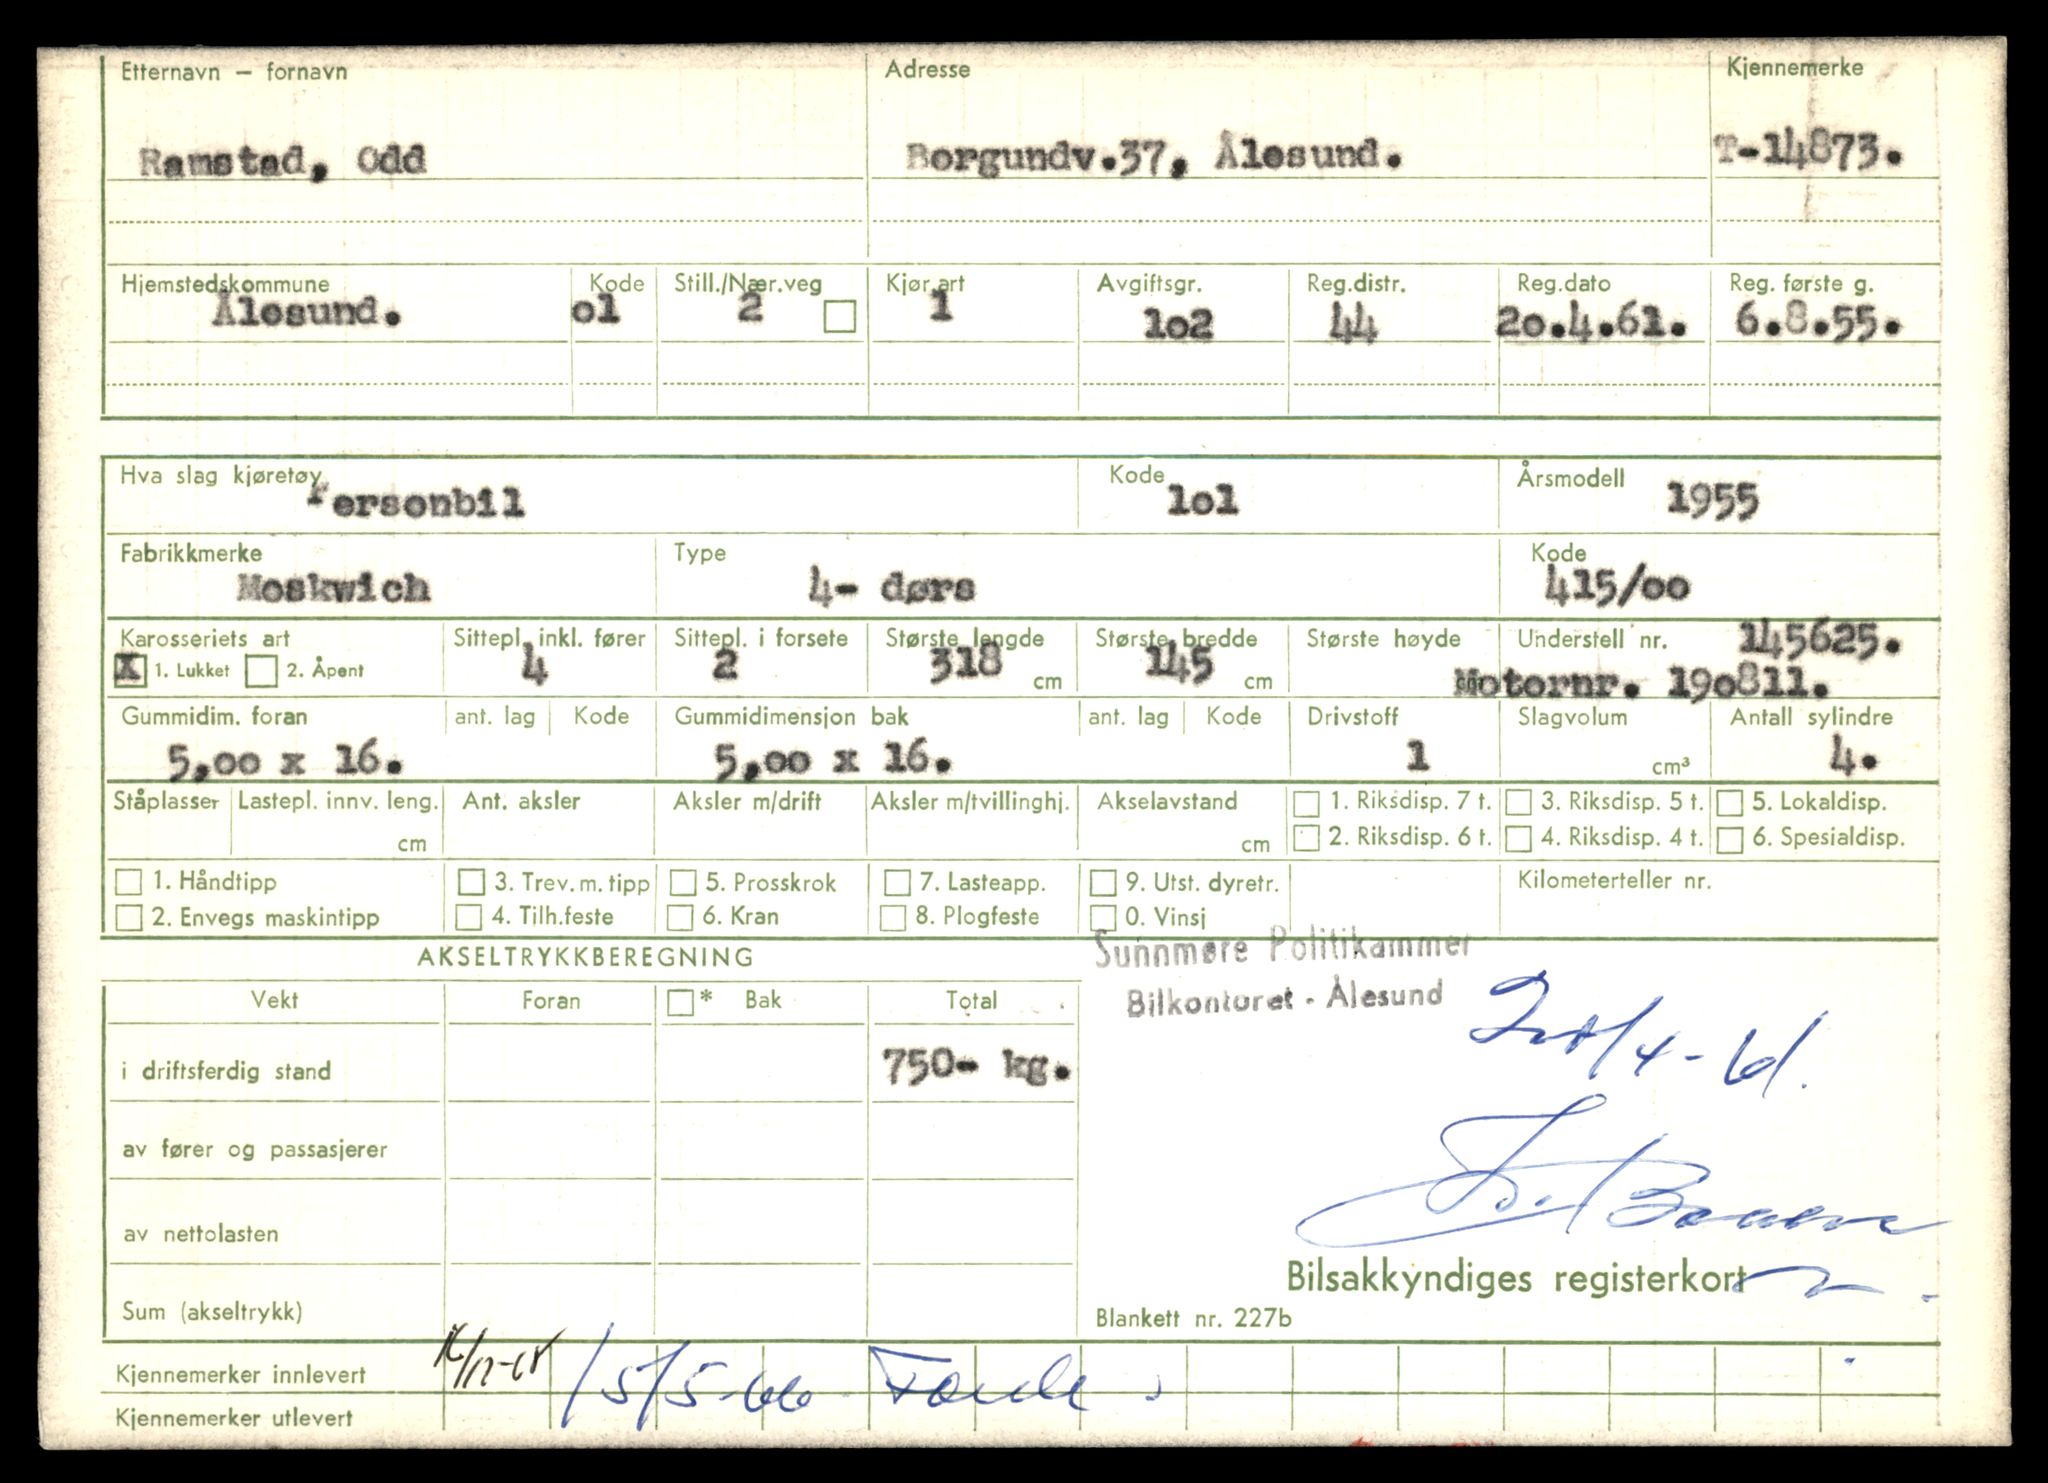 Etternavn — fornavn Adresse Kjennemerke
Ramstad, Odd Borgundv.37, Ålesund. T-14873.
Hjemstedskommune Kode Still./Nær.veg Kjør.art Avgiftsgr. Reg.distr. Reg.dato Reg. første g.
Ålesund. o1 2 1 1o2 44 2o.4.61. 6.8.55.
Hva slag kjøretøy Kode Årsmodell
Personbil 1o1 1955
Fabrikkmerke Type Kode
Moskwich 4- dørs 415/oo
Karosseriets art Sittepl. inkl. fører Sittepl. i forsete Største lengde Største bredde Største høyde Understell nr. 145625.
X 1. Lukket 2. Åpent 4 2 318 cm 145 cm cm Motornr. 190811.
Gummidim. foran ant. lag Kode Gummidimensjon bak ant. lag Kode Drivstoff Slagvolum Antall sylindre
5,oo x 16. 5,oo x 16. 1 cm³ 4.
Ståplasser Lastepl. innv. leng. Ant. aksler Aksler m/drift Aksler m/tvillinghj. Akselavstand 1. Riksdisp. 7 t. 3. Riksdisp. 5 t. 5. Lokaldisp.
cm cm 2. Riksdisp. 6 t. 4. Riksdisp. 4 t. 6. Spesialdisp.
1. Håndtipp 3. Trev. m. tipp 5. Prosskrok 7. Lasteapp. 9. Utst. dyretr. Kilometerteller nr.
2. Envegs maskintipp 4. Tilh.feste 6. Kran 8. Plogfeste 0. Vinsj
AKSELTRYKKBEREGNING
Sunnmøre Politikammer
Bilkontoret - Ålesund
Vekt Foran * Bak Total
i driftsferdig stand 750- kg.
av fører og passasjerer
av nettolasten
Bilsakkyndiges registerkort
Sum (akseltrykk)
Blankett nr. 227b
Kjennemerker innlevert 15/5-66
Kjennemerker utlevert